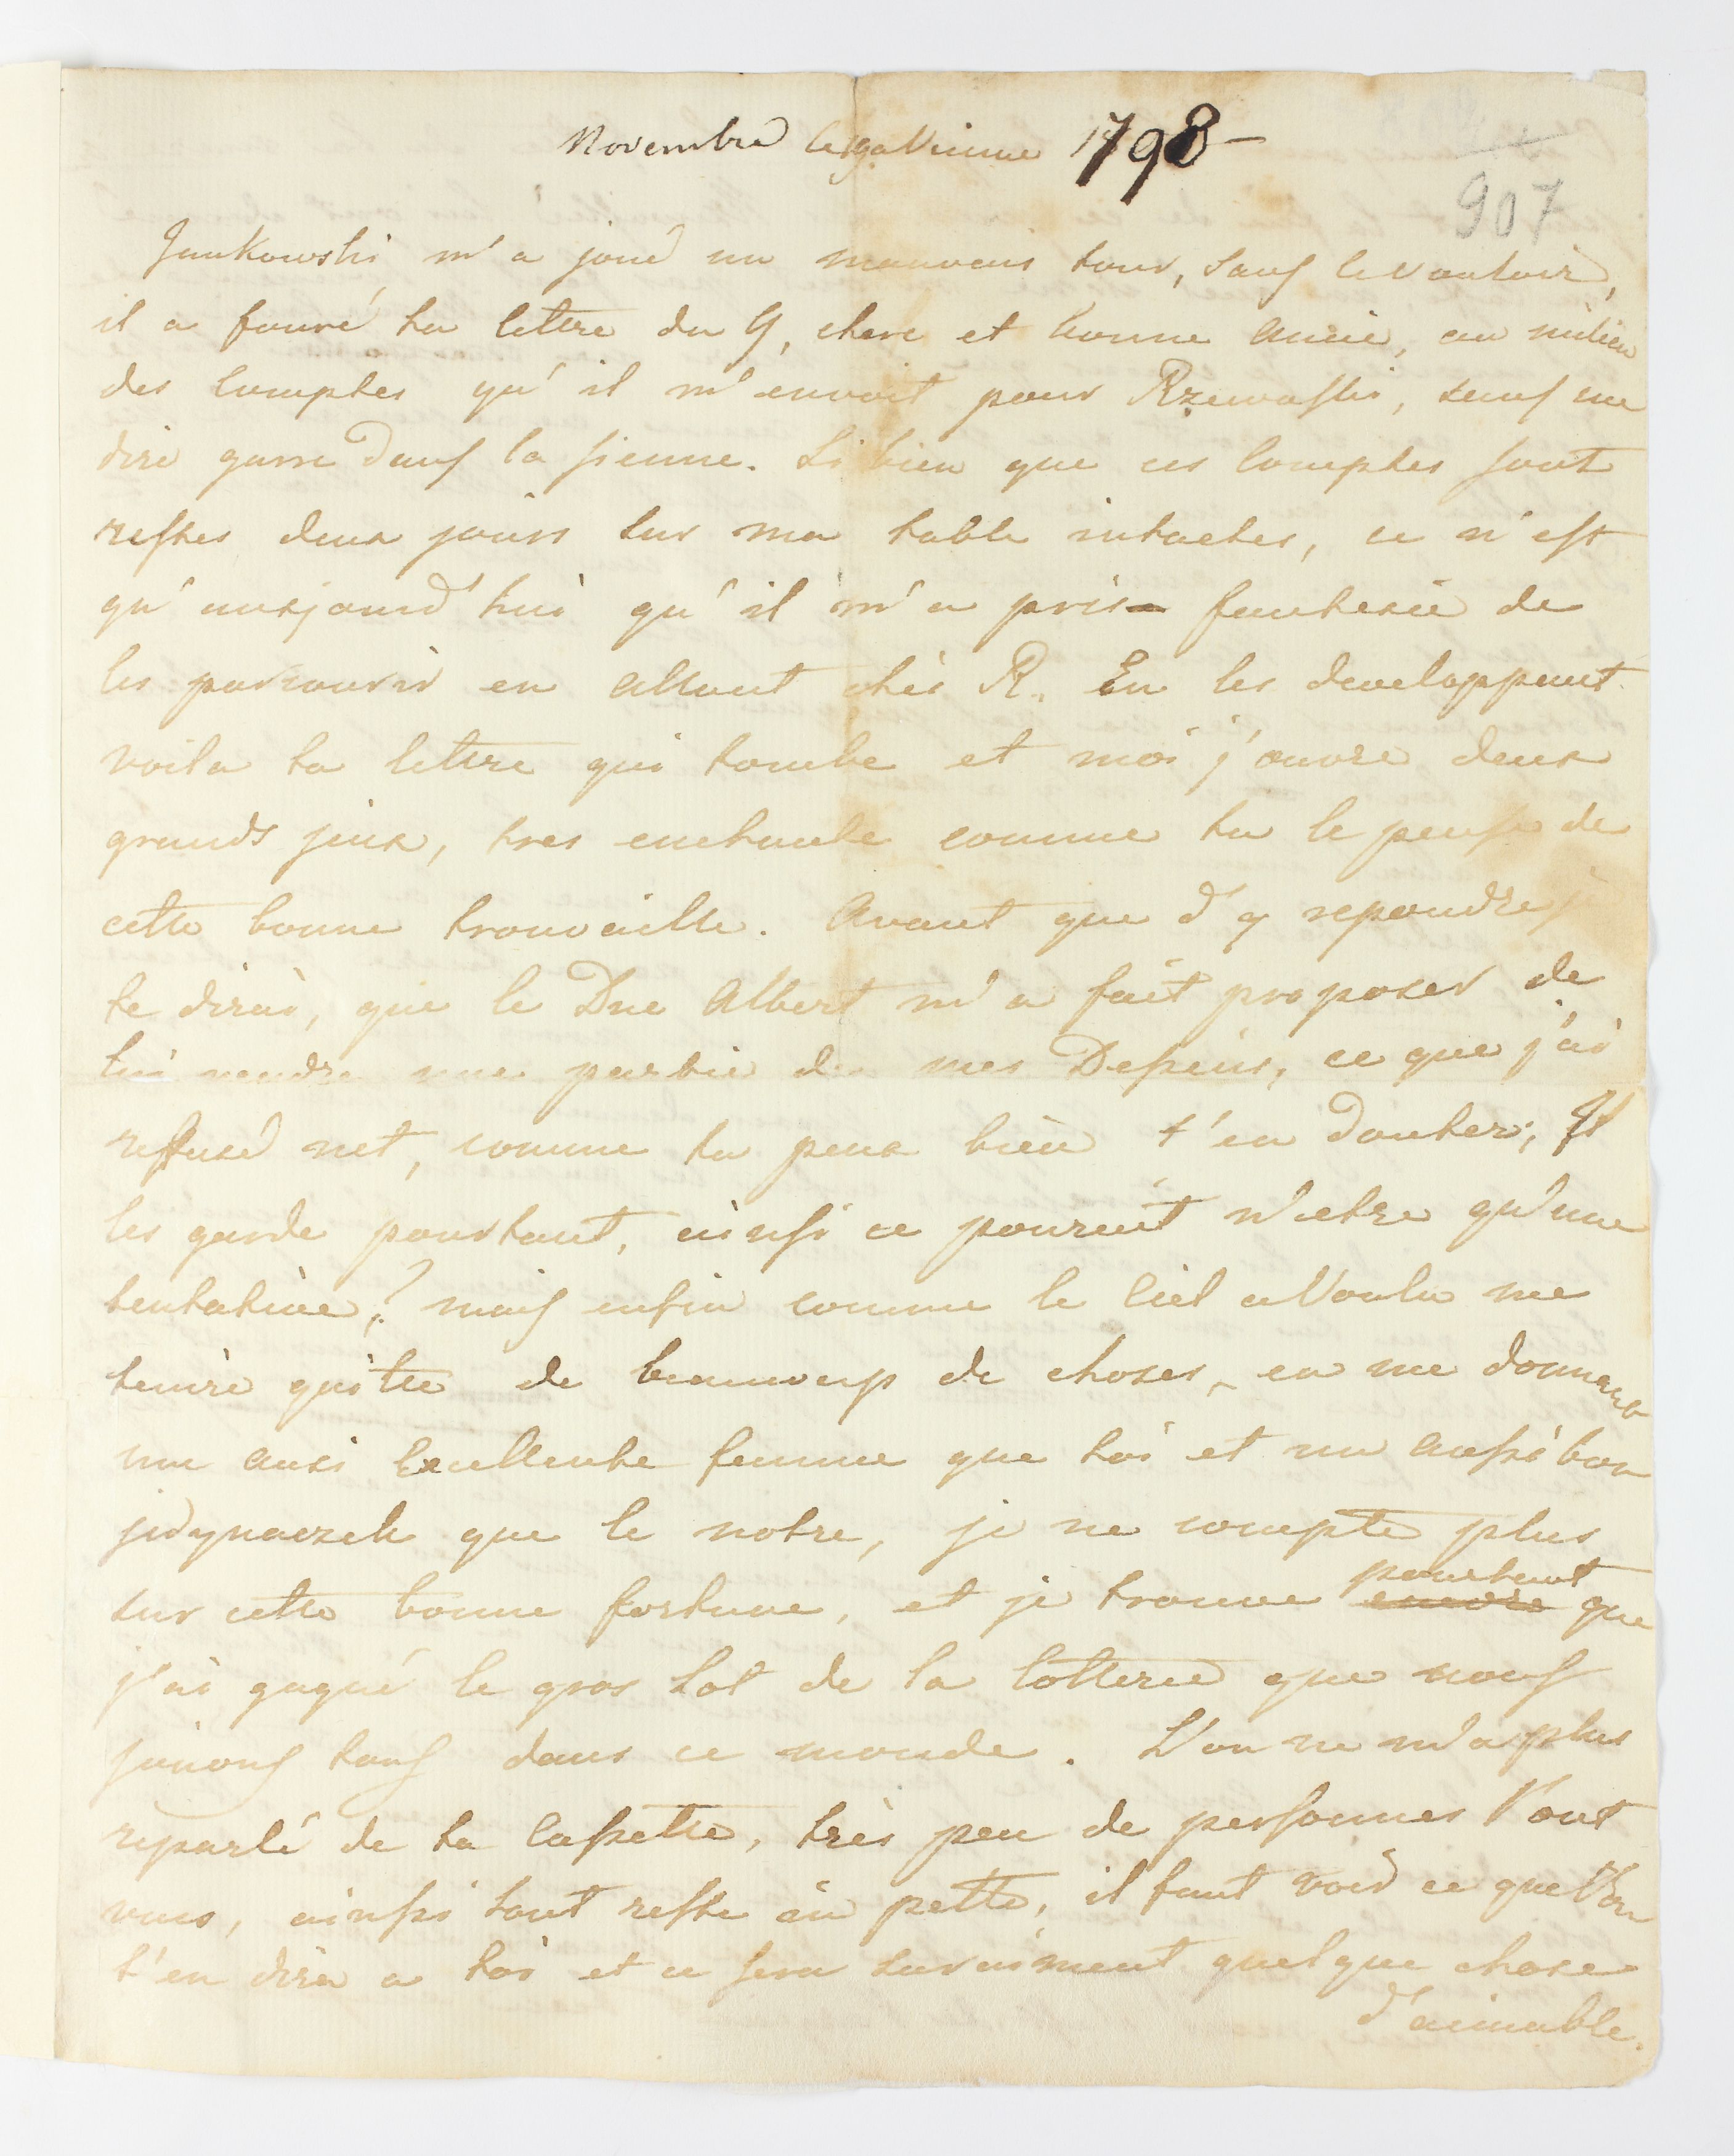 Novembre ce 19 a Vienne 1798 –
907
Jankowski, m'a joué un mauvais tour, sauf le vouloir,
il a fouré ta lettre du 9, chere et bonne amie, au milieu
des comptes qu'il m'envoit pour Rzewuski, sans me
dire garre dans la sienne. Si bien que ces comptes sont
restes deux jours sur ma table intactes, ce n'est
qu'aujourd'hui qu'il m'a pris fantesie de
les parcourir en allant chés R. En les developpent
voila ta lettre qui tombe et moi j'ouvre deux
grands jeux, tres enchante comme tu le pense de
cette bonne trouvaille. Avant que d'y repondre je
te dirai, que le Duc Albert m'a fait proposer de
lui vendre une partie de mes Dessins, ce que j'ai
reffusé net, comme tu peux bien t'en douter; Il
les garde pourtant, ainsi ce pourait n'etre qu'une
tentative? mais enfin comme le Ciel a voulu me
tenire quitte de beaucoup de choses, en me donnant
une ausi Excellente femme que toi et un aussi bon
jedynaczek que le notre, je ne compte plus
sur cette bonne fortune, et je trouve encore pourtant que
j'ai gagné le gros lot de la lotterie que nous
jouons tous dans ce monde. L'on ne m'a plus
reparlé de ta Cassette, très peu de personnes l'ont
vues, ainsi tout reste in petto, il faut voir ce que l'on
t'en dira a toi et ce sera suraiment quelque chose
d'aimable.